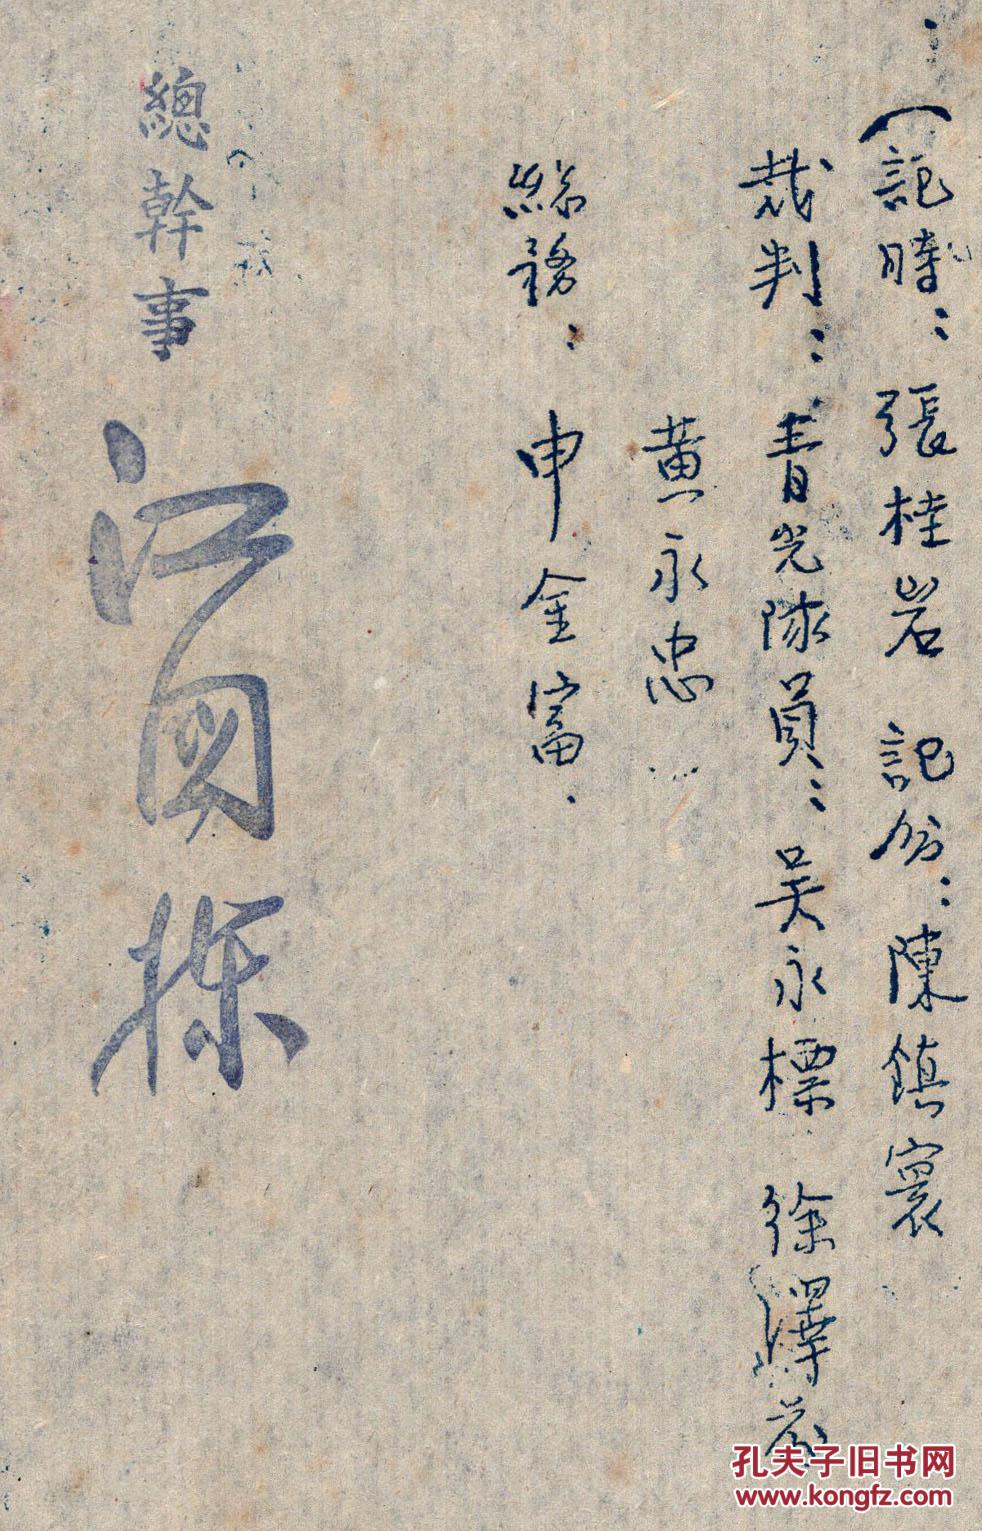 （記時：張桂岩 記分：陳鎮寰
裁判：青光隊員：吴永標 徐澤
黄永忠
總務：申金富
總幹事 江國樑
孔夫子旧书网
www.kongfz.com